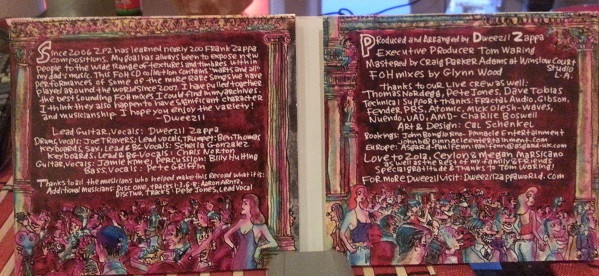 Since 2006 ZPZ has learned nearly 200 Frank Zappa
compositions. My goal has always been to expose new
people to the wide range of textures and timbres within
my dad's music. This FOH CD collection contains "warts and all"
performances of some of the more rare songs we have
played around the world since 2007. I have pulled together
the best sounding FOH mixes I could find in my archives.
I think they also happen to have significant character
and musicianship. I hope you enjoy the variety!
-Dweezil
Lead Guitar, Vocals: Dweezil Zappa
Drums, Vocals: Joe Travers; Lead Vocals, Trumpet: Ben Thomas
Keyboards, Sax, Lead & BG Vocals: Scheila Gonzalez
Keyboards, Lead & BG Vocals: Chris Norton
Guitar, Vocals: Jamie Kime; Percussion: Billy Hulting
Bass, Vocals: Pete Griffin
Thanks to all the musicians who helped make this Record what it is:
Additional Musicians: Disc One, Tracks 1-3, 6-8: Aaron Arntz
Disc Two, Track 5: Pete Jones, Lead Vocal
Produced and Arranged by Dweezil Zappa
Executive Producer Tom Waring
Mastered by Craig Parker Adams at Winslow Court
Studio
L.A.
FOH mixes by Glynn Wood
Thanks to our live crew as well:
Thomas Nordegg, Pete Jones, Dave Tobias
Technical Support thanks: Fractal Audio, Gibson,
Fender, PRS, Atomic, Alex Olesh-Waves,
Nuendo, UAD, AMD- Charlie Boswell
Art & Design: Cal Schenkel
Bookings: John Bongiorno- Pinnacle Entertainment
johnb@pinnacleentertainment.com
Europe: Asgard-Paul Fenn
Love to Zola, Ceylon & Megan Marsicano
as well as the rest of my family & friends
Special gratitude & Thanks to Tom Waring!
For more Dweezil visit: www.dweezilzappaworld.com